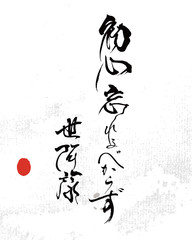 初心忘れるべからず
世阿弥